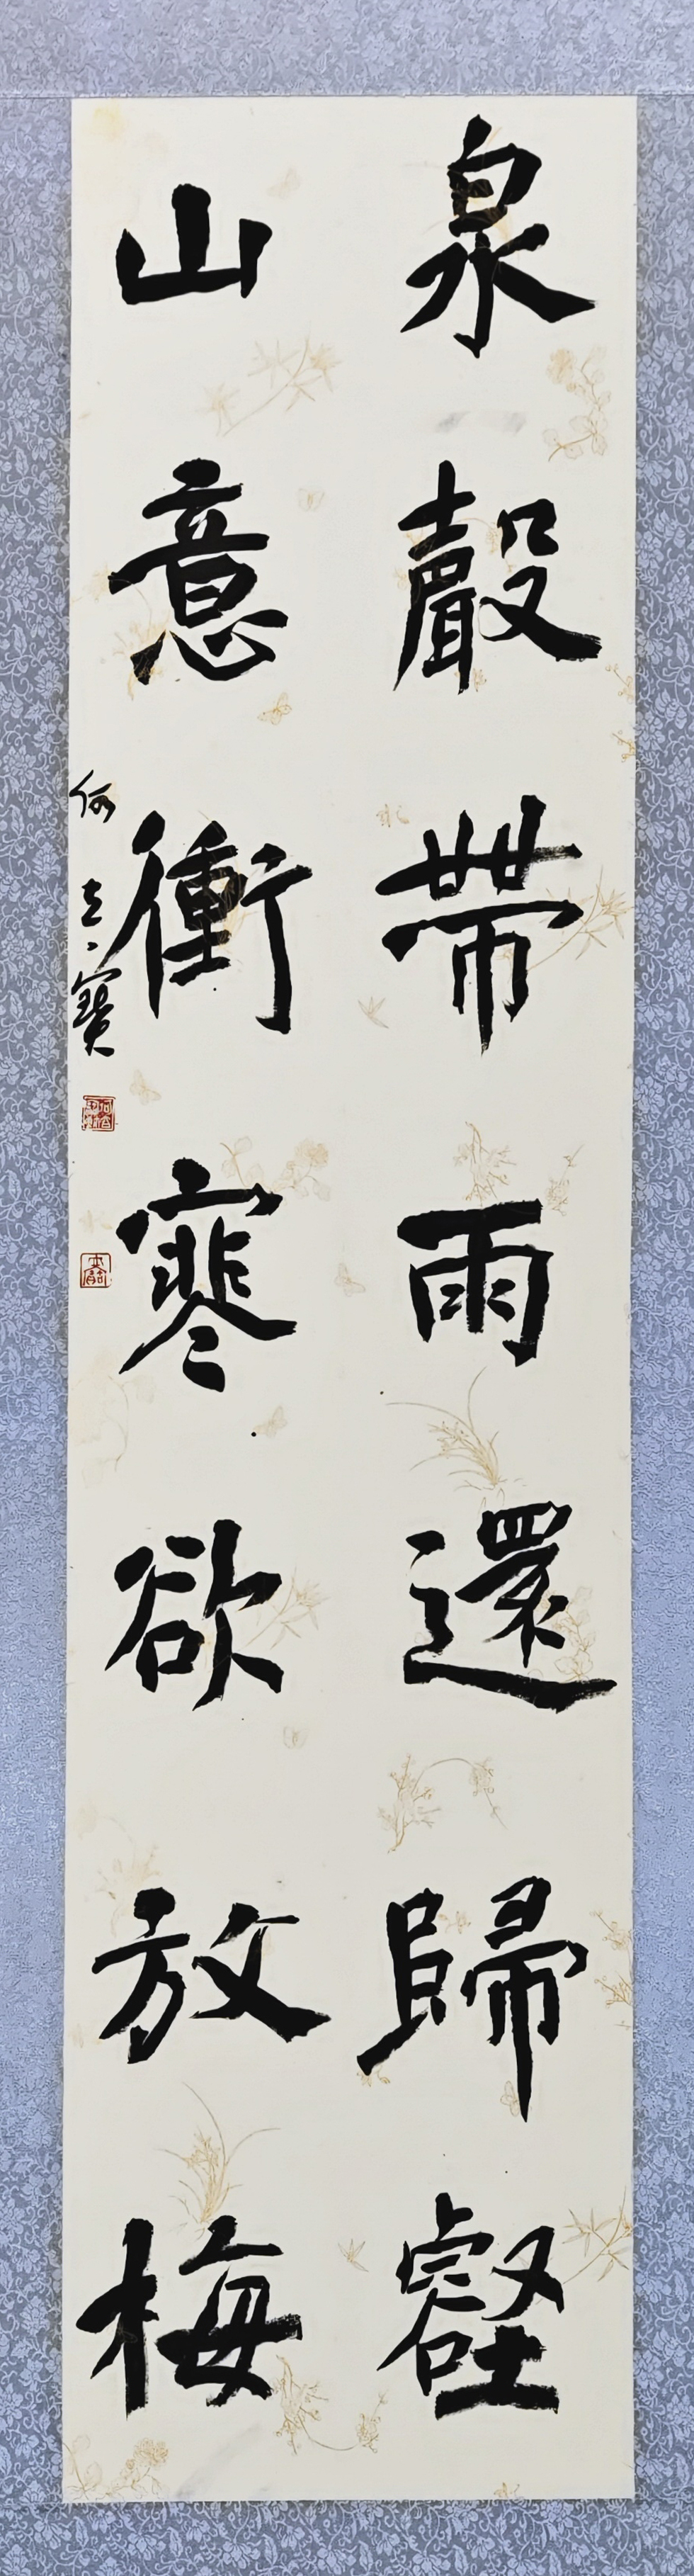 泉聲帶雨還歸壑
山意衝寒欲放梅
何
寶